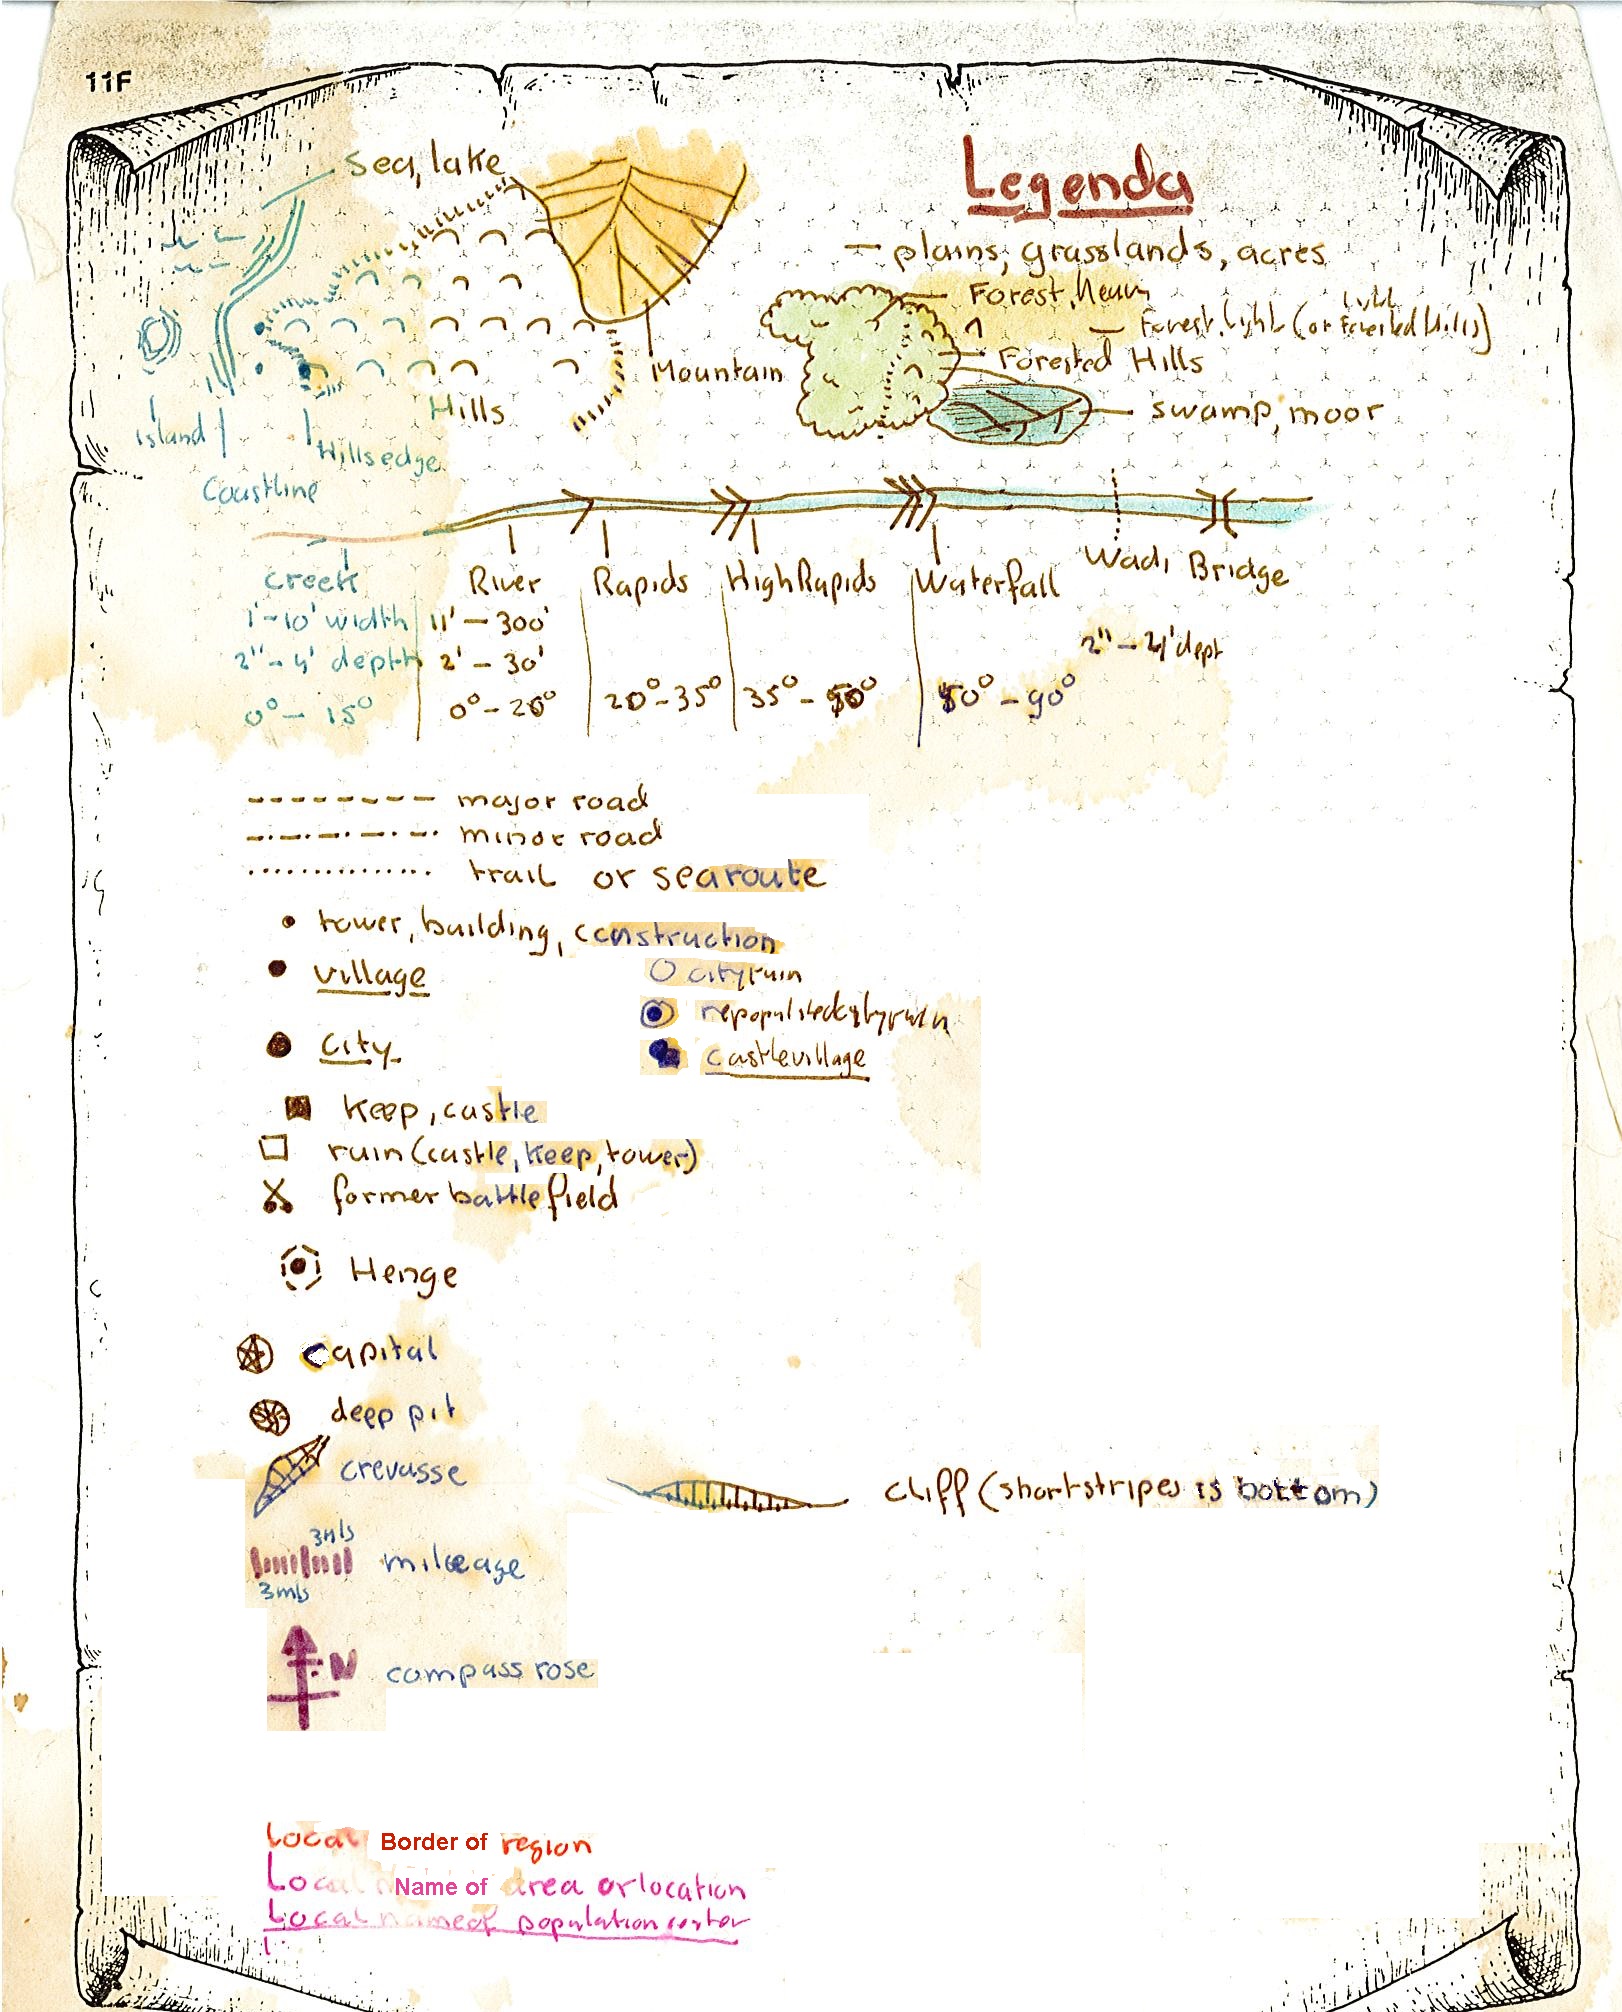 11F
Legenda
Sea, lake
plains, grasslands, acres
Forest, heavy
Forest, light (or light Forested Hills)
Mountain
Forested Hills
Hills
swamp, moor
island
Hillsedge
Coastline
Creek River Rapids High Rapids Waterfall Wadi Bridge
1'-10' width 11' - 300'
2" - 4' depth 2' - 30' 2" - 4' dept
0° - 15° 0° - 20° 20° - 35° 35° - 50° 50° - 90°
major road
minor road
trail or searoute
tower, building, construction
village
cityruin
repopulated cityruin
city
castlevillage
keep, castle
ruin (castle, keep, tower)
former battlefield
Henge
capital
deep pit
crevasse
cliff (shortstripes is bottom)
3mls
mileage
3mls
N
compass rose
Local Border of region
Local Name of area or location
Local name of population center